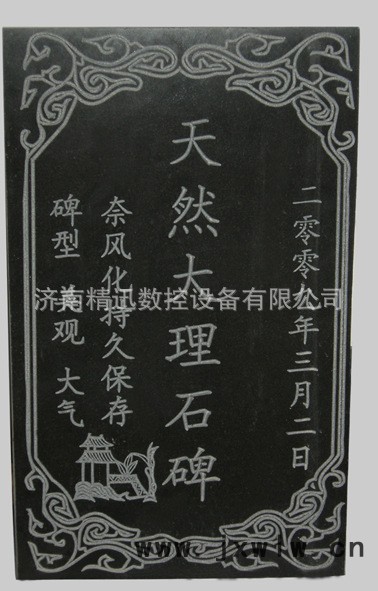 二零零九年三月二日
天然大理石碑
奈风化持久保存
碑型 美观 大气
济南精迅数控设备有限公司
www.jxwiw.cn